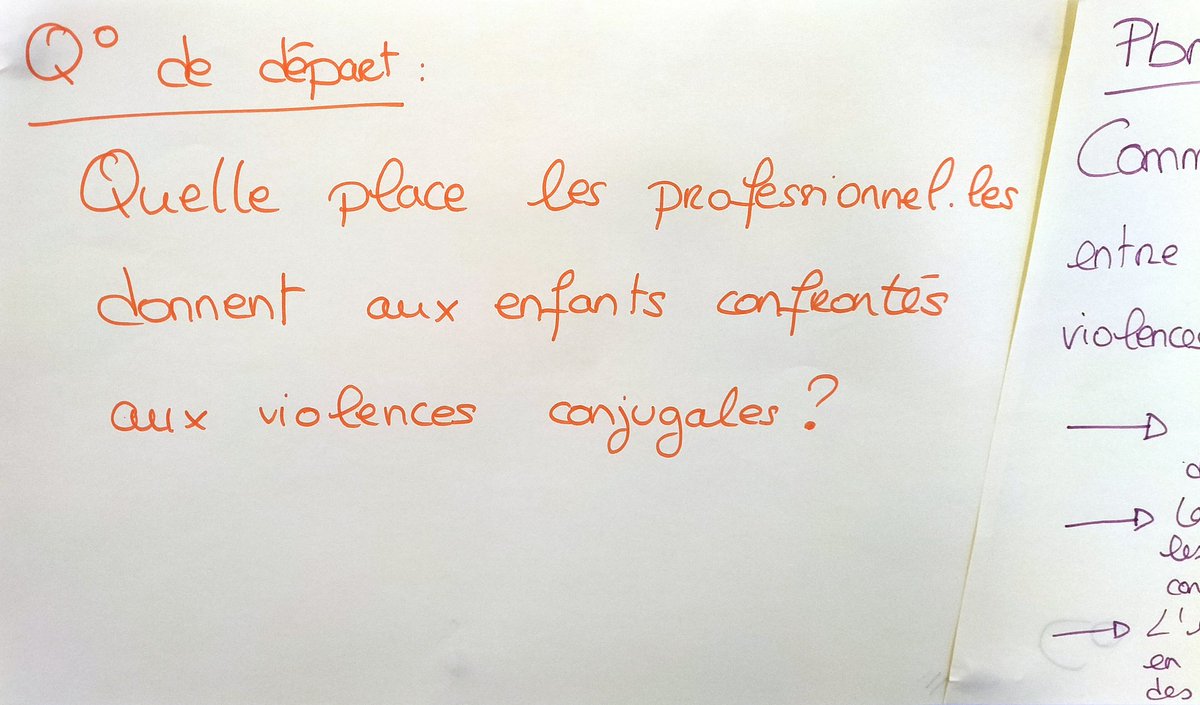 Q° de départ :
Quelle place les professionnel.les
donnent aux enfants confrontés
aux violences conjugales ?
entre
violences
les
en
des